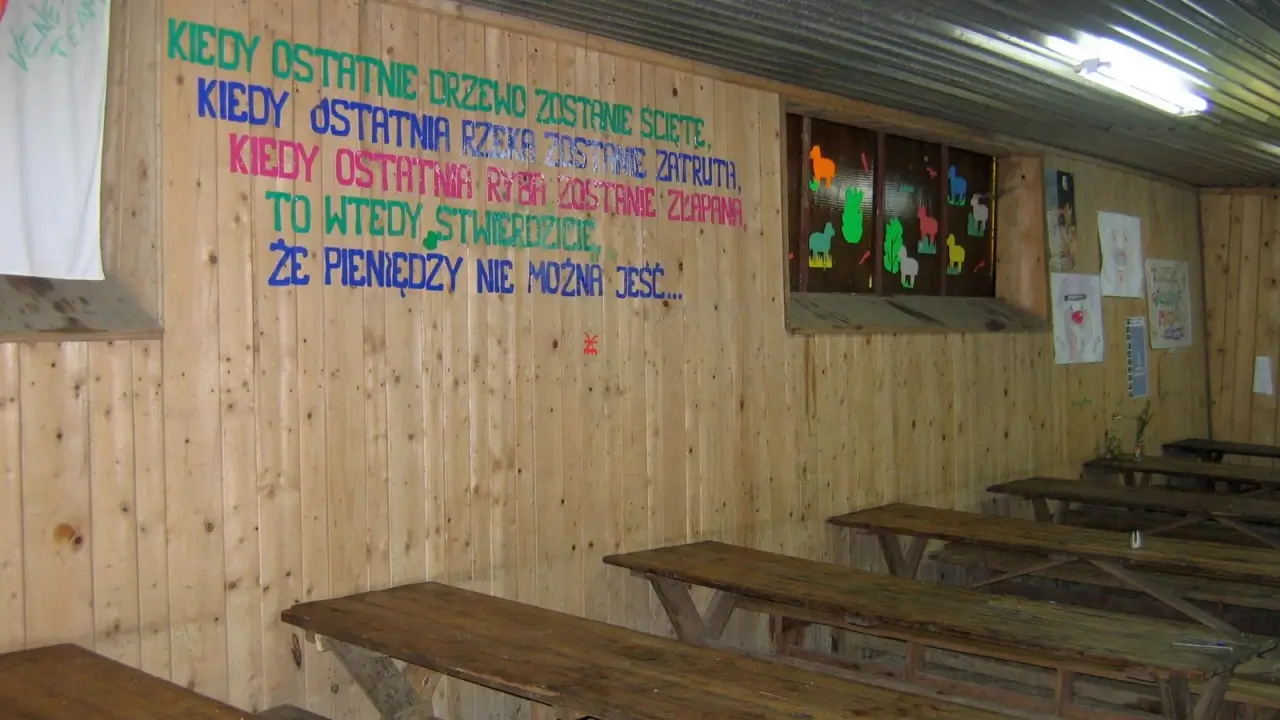 KIEDY OSTATNIE DRZEWO ZOSTANIE ŚCIĘTE,
KIEDY OSTATNIA RZEKA ZOSTANIE ZATRUTA,
KIEDY OSTATNIA RYBA ZOSTANIE ZŁAPANA,
TO WTEDY STWIERDZICIE,
ŻE PIENIĘDZY NIE MOŻNA JEŚĆ...